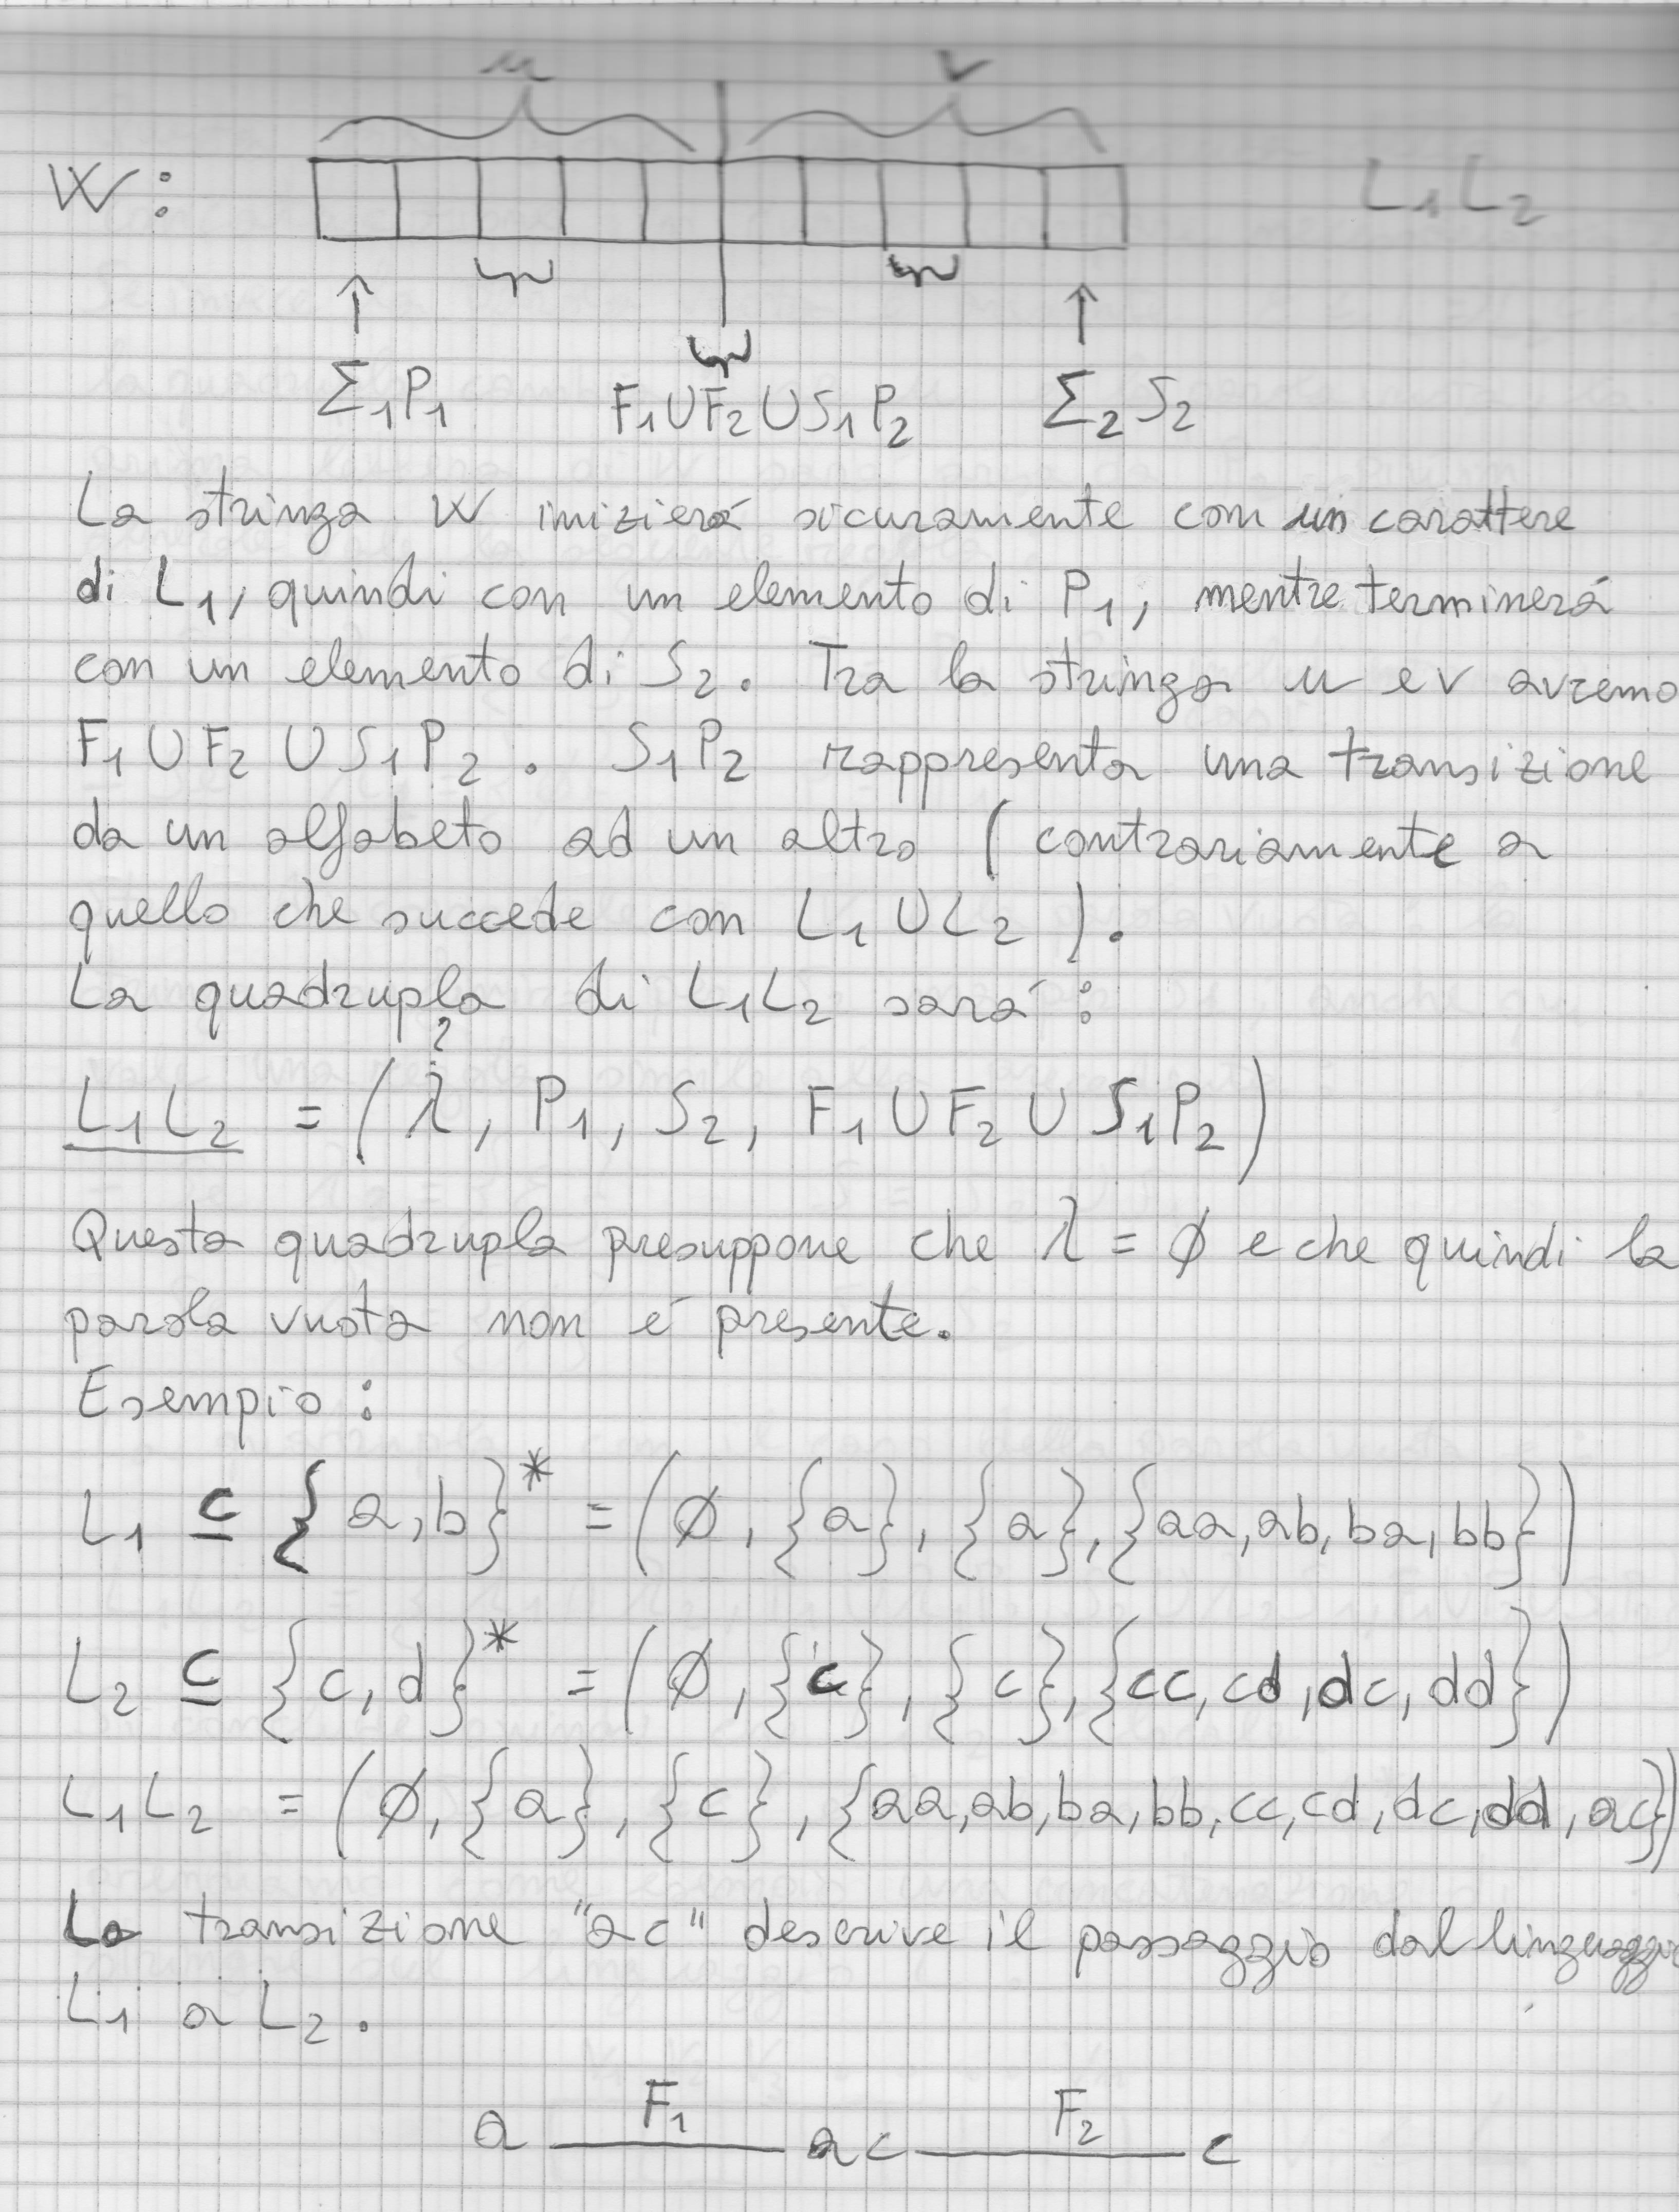 u v
W: L₁L₂
Σ₁P₁ F₁∪F₂∪S₁P₂ Σ₂S₂
La stringa W inizierá sicuramente con un carattere
di L₁, quindi con un elemento di P₁, mentre terminerá
con un elemento di S₂. Tra la stringa u e v avremo
F₁∪F₂∪S₁P₂. S₁P₂ rappresenta una transizione
da un alfabeto ad un altro (contrariamente a
quello che succede con L₁∪L₂).
La quadrupla di L₁L₂ sará:
?
L₁L₂ = (λ, P₁, S₂, F₁∪F₂∪S₁P₂)
Questa quadrupla presuppone che λ = ∅ e che quindi la
parola vuota non é presente.
Esempio:
L₁ ⊆ {a,b}* = (∅, {a}, {a}, {aa, ab, ba, bb})
L₂ ⊆ {c,d}* = (∅, {c}, {c}, {cc, cd, dc, dd})
L₁L₂ = (∅, {a}, {c}, {aa, ab, ba, bb, cc, cd, dc, dd, ac})
La transizione "ac" descrive il passaggio dal linguaggio
L₁ a L₂.
F₁ F₂
a ac c